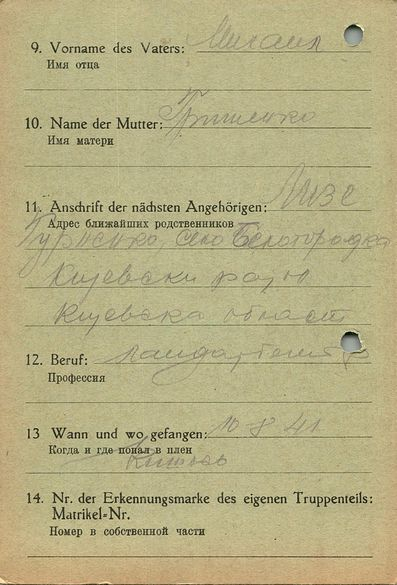 9. Vorname des Vaters: Михаил
Имя отца
10. Name der Mutter: Гришенко
Имя матери
11. Anschrift der nächsten Angehörigen:
Адрес ближайших родственников
село Белогородка
Киевска област
12. Beruf:
Профессия
13 Wann und wo gefangen: 10 8 41
Когда и где попал в плен
14. Nr. der Erkennungsmarke des eigenen Truppenteils:
Matrikel-Nr.
Номер в собственной части